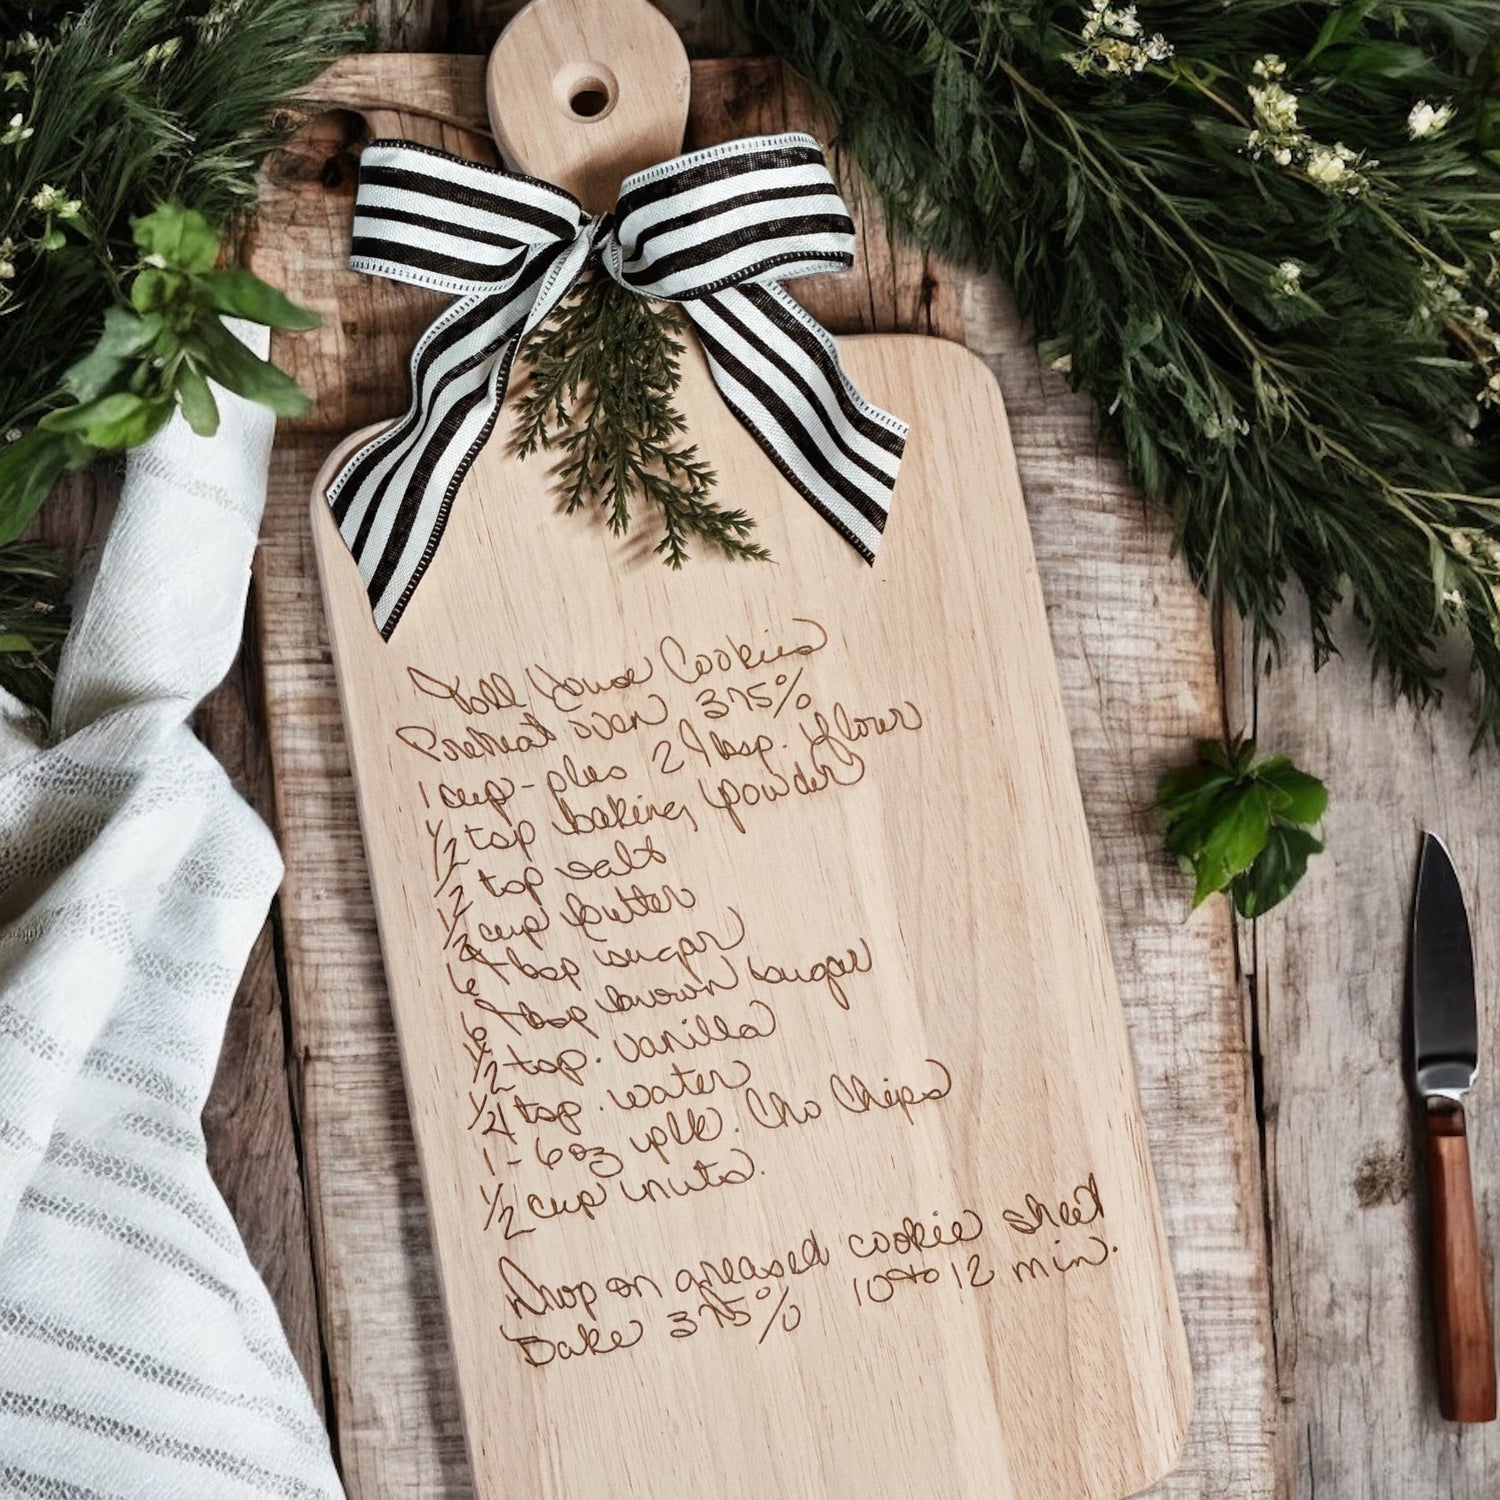 Toll House Cookies
Preheat oven 375%
1 cup - plus 2 Tbsp. flour
1/2 tsp baking powder
1/2 tsp salt
1/2 cup butter
6 Tbsp sugar
6 Tbsp brown sugar
1/2 tsp. vanilla
1/4 tsp. water
1 - 6 oz pkk. Cho Chips
1/2 cup nuts.
Drop on greased cookie sheet
Bake 375% 10 to 12 min.